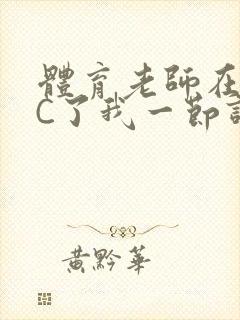 體育老師在
C了我一節
黃黔華